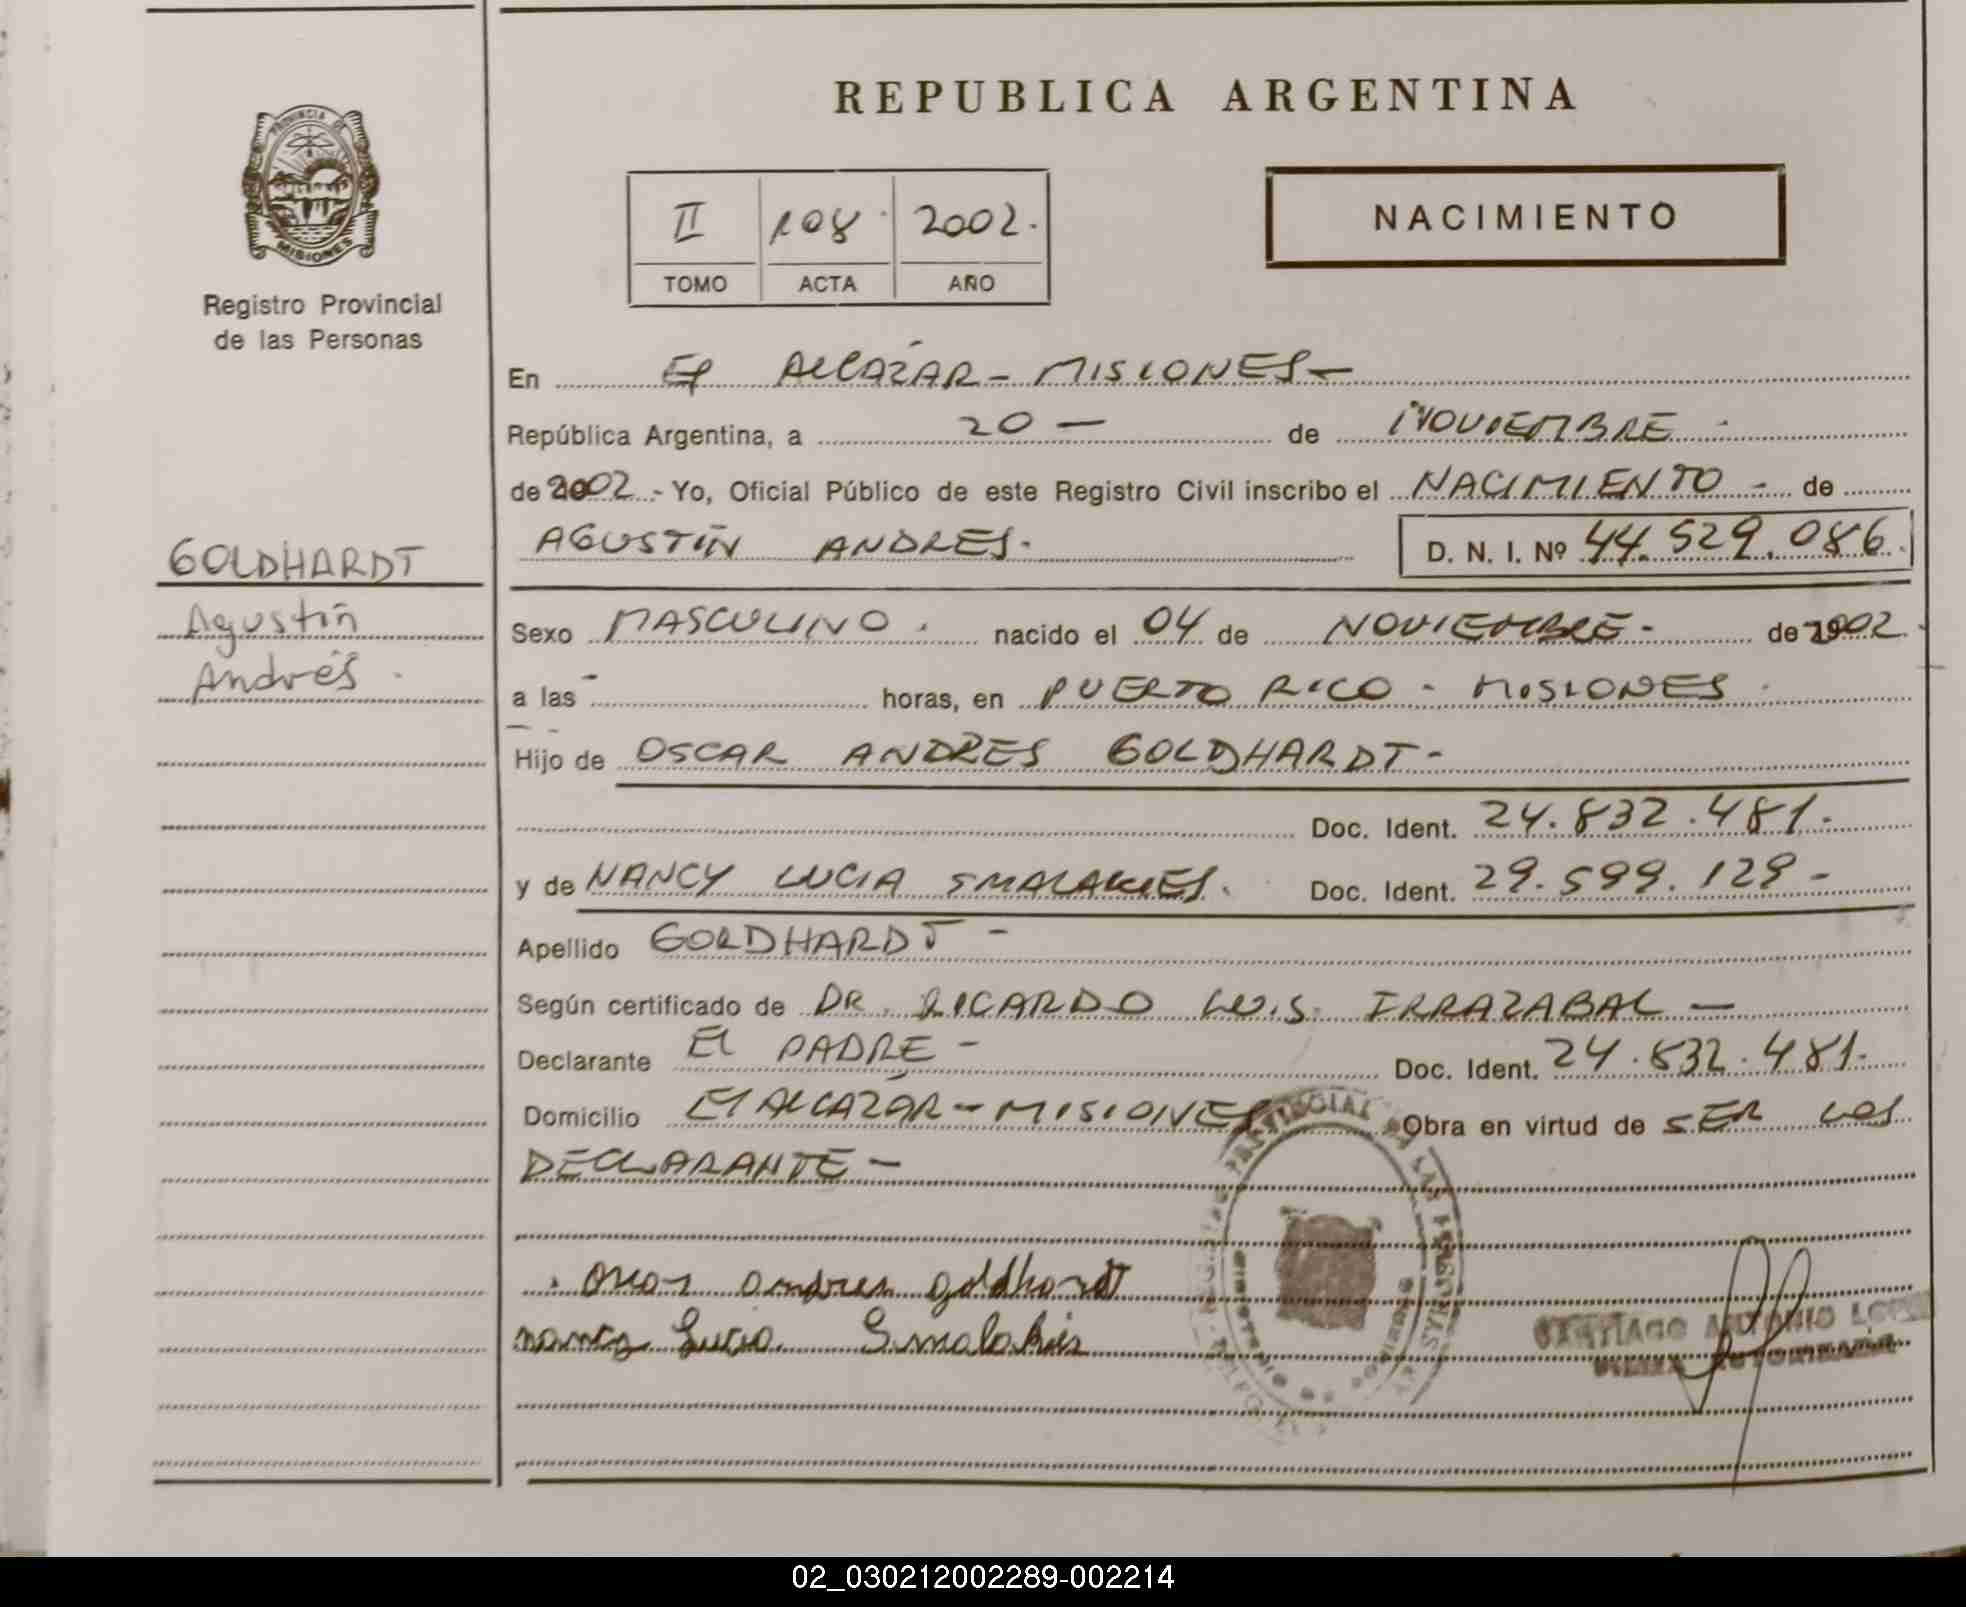 PROVINCIA DE
MISIONES
Registro Provincial
de las Personas
GOLDHARDT
Agustín
Andrés.
REPUBLICA ARGENTINA
NACIMIENTO
II 108. 2002.
TOMO ACTA AÑO
En El ALCAZAR - MISIONES -
República Argentina, a 20 - de NOVIEMBRE -
de 2002 .- Yo, Oficial Público de este Registro Civil inscribo el NACIMIENTO - de
AGUSTÍN ANDRES. D. N. I. Nº 44.529.086.
Sexo MASCULINO. nacido el 04 de NOVIEMBRE - de 2002.
a las - horas, en PUERTO RICO - MISIONES.
Hijo de OSCAR ANDRES GOLDHARDT -
Doc. Ident. 24.832.481.
y de NANCY LUCIA SMALAKIES. Doc. Ident. 29.599.129 -
Apellido GOLDHARDT -
Según certificado de DR. RICARDO LUIS IRRAZABAL -
Declarante El PADRE - Doc. Ident. 24.832.481.
Domicilio El ALCAZAR - MISIONES Obra en virtud de SER LOS
DECLARANTE -
Oscar andres goldhardt
nancy Lucia Smalakies
SANTIAGO ANTONIO LOPEZ
02_030212002289-002214